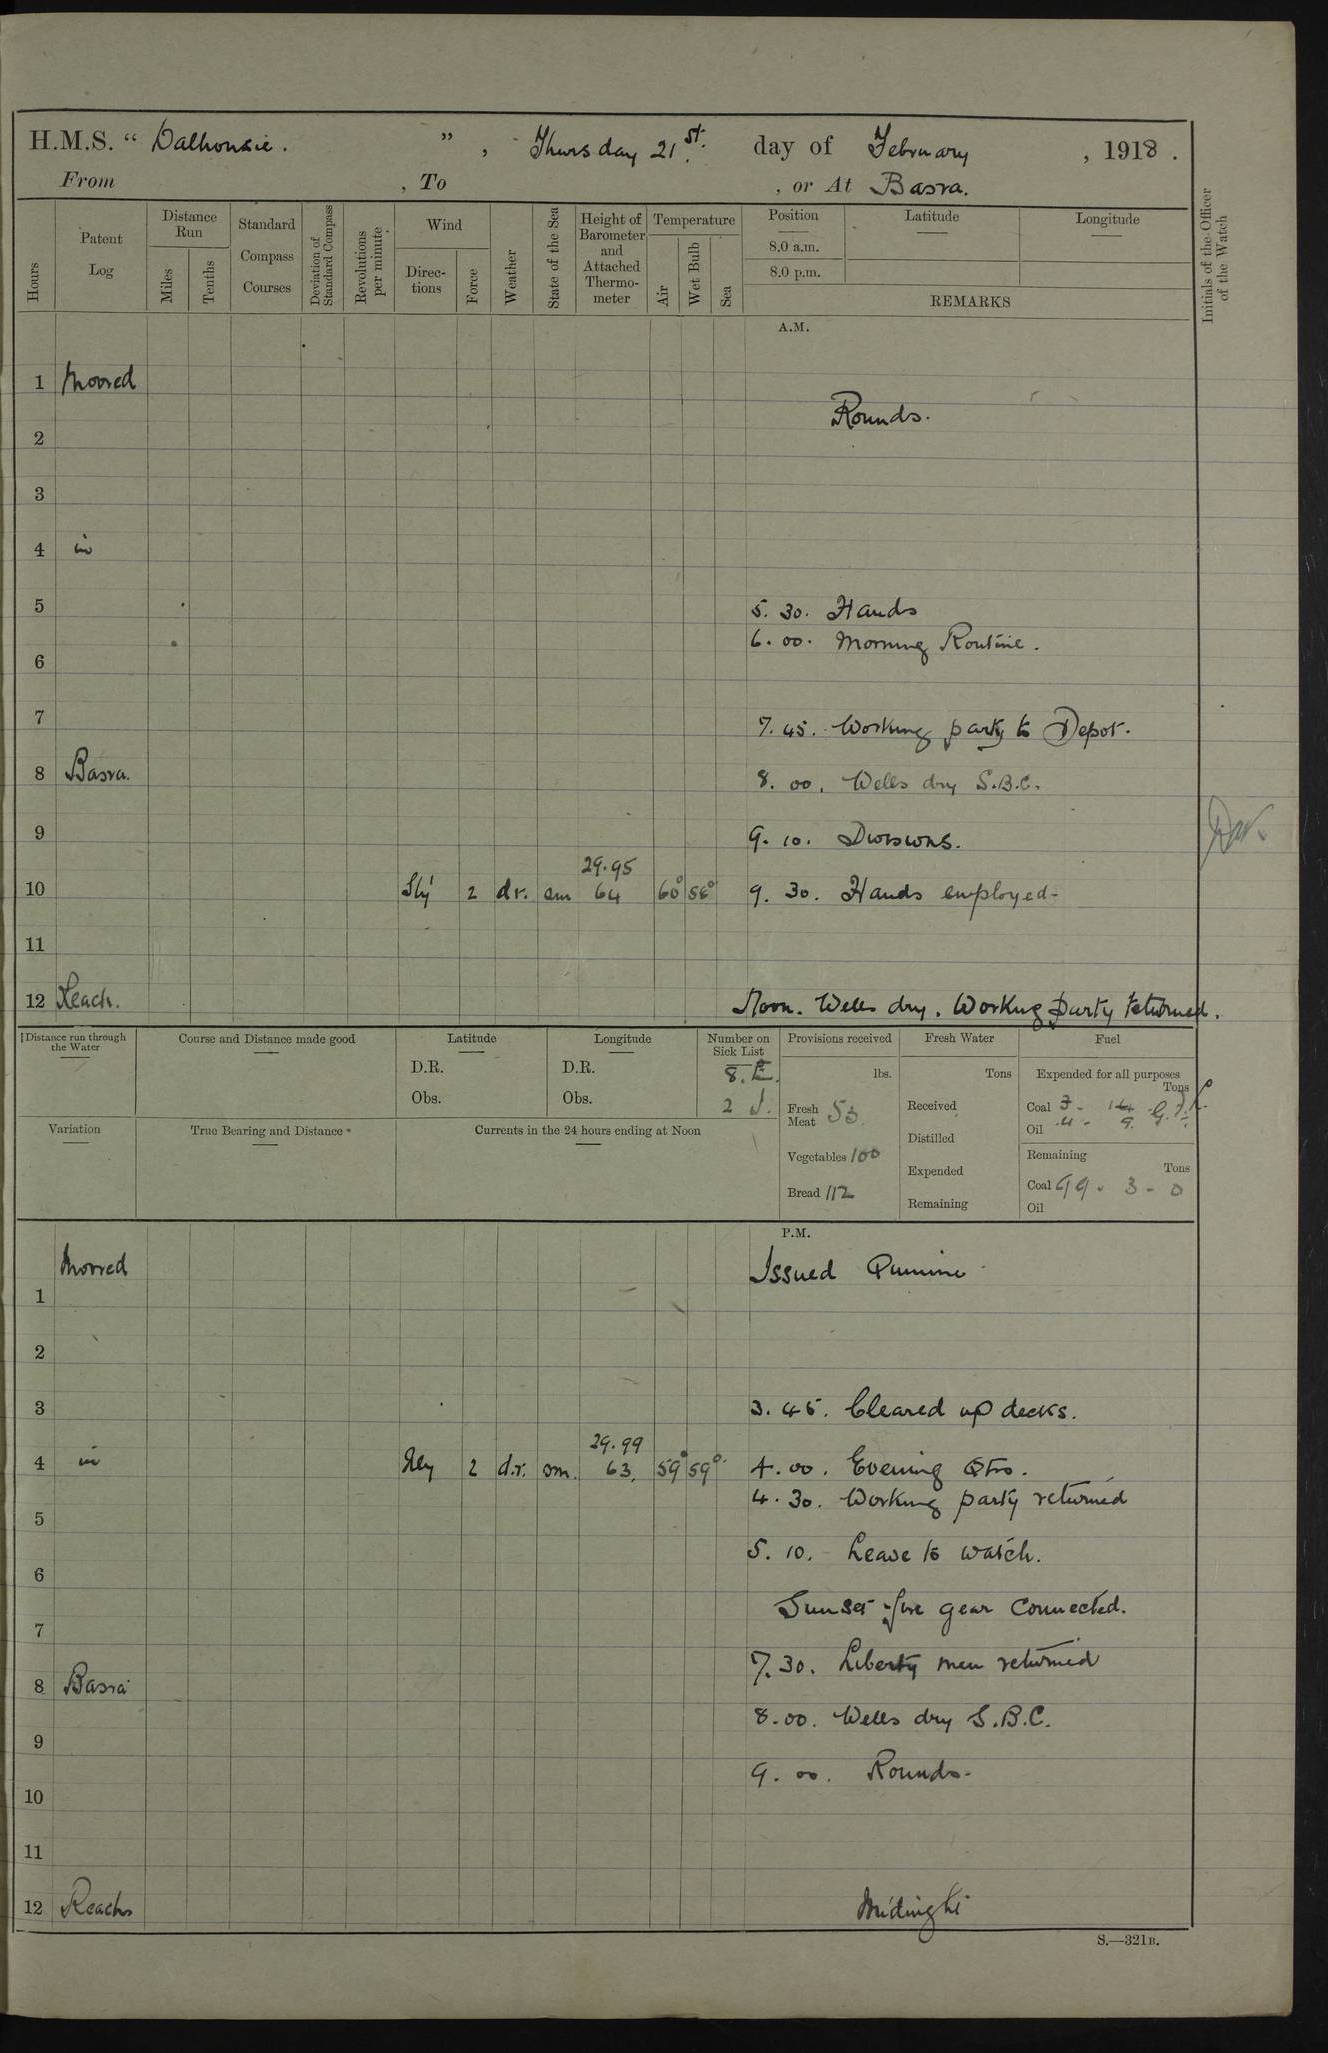 H.M.S. “ Dalhousie. ” , Thursday 21st. day of February , 1918 .
From , To , or At Basra.
Hours
Patent Log
Distance Run
Miles
Tenths
Standard Compass Courses
Deviation of Standard Compass
Revolutions per minute
Wind
Directions
Force
Weather
State of the Sea
Height of Barometer and Attached Thermometer
Temperature
Air
Wet Bulb
Sea
Position
8.0 a.m.
8.0 p.m.
Latitude
Longitude
REMARKS
Initials of the Officer of the Watch
A.M.
1 Moored
Rounds.
2
3
4 in
5
5. 30. Hands
6. 00. Morning Routine.
6
7
7. 45. Working party to Depot.
8 Basra.
8. 00. Wells dry S.B.C.
9
9. 10. Divisions.
29.95
10 Sly 2 d.r. 64 60° 58° 9. 30. Hands employed-
11
12 Reach. Noon. Wells dry. Working party returned.
Distance run through the Water
Course and Distance made good
Latitude
D.R.
Obs.
Longitude
D.R.
Obs.
Number on Sick List
8. E.
2 I.
Provisions received
lbs.
Fresh Meat 53
Vegetables 100
Bread 112
Fresh Water
Tons
Received
Distilled
Expended
Remaining
Fuel
Expended for all purposes
Tons
Coal 3 - 14
Oil 4 - 9
Remaining
Tons
Coal 99 - 3 - 0
Oil
Variation
True Bearing and Distance
Currents in the 24 hours ending at Noon
P.M.
Moored
Issued Quinine
1
2
3
3. 45. Cleared up decks.
29.99
4 in Nly 2 d.r. om. 63. 59° 59° 4. 00. Evening Qtrs.
4. 30. Working party returned
5
5. 10. Leave to watch.
6
Sunset fire gear connected.
7
7. 30. Liberty men returned
8 Basra
8.00. Wells dry S.B.C.
9
9. 00. Rounds.
10
11
12 Reach Midnight
S.—321B.